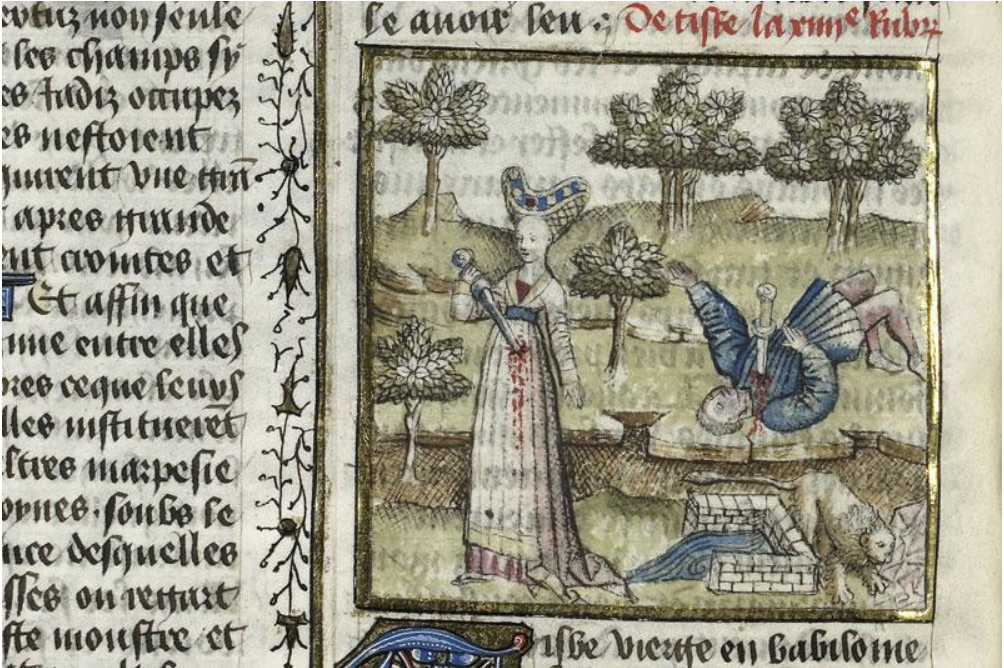 non seule
les champs sy
es Jadiz occupez
es nestoient
vne
apres grande
ent et
Et affin que
une entre elles
ceque leurs
lles instituerẽt
ltres marpesie
oynes. soubs le
nce desquelles
sses ou regart
ste monstre et
le auoir leu. De tisbe la xiiijᵉ Rubr
Tisbe vierge en babiloine